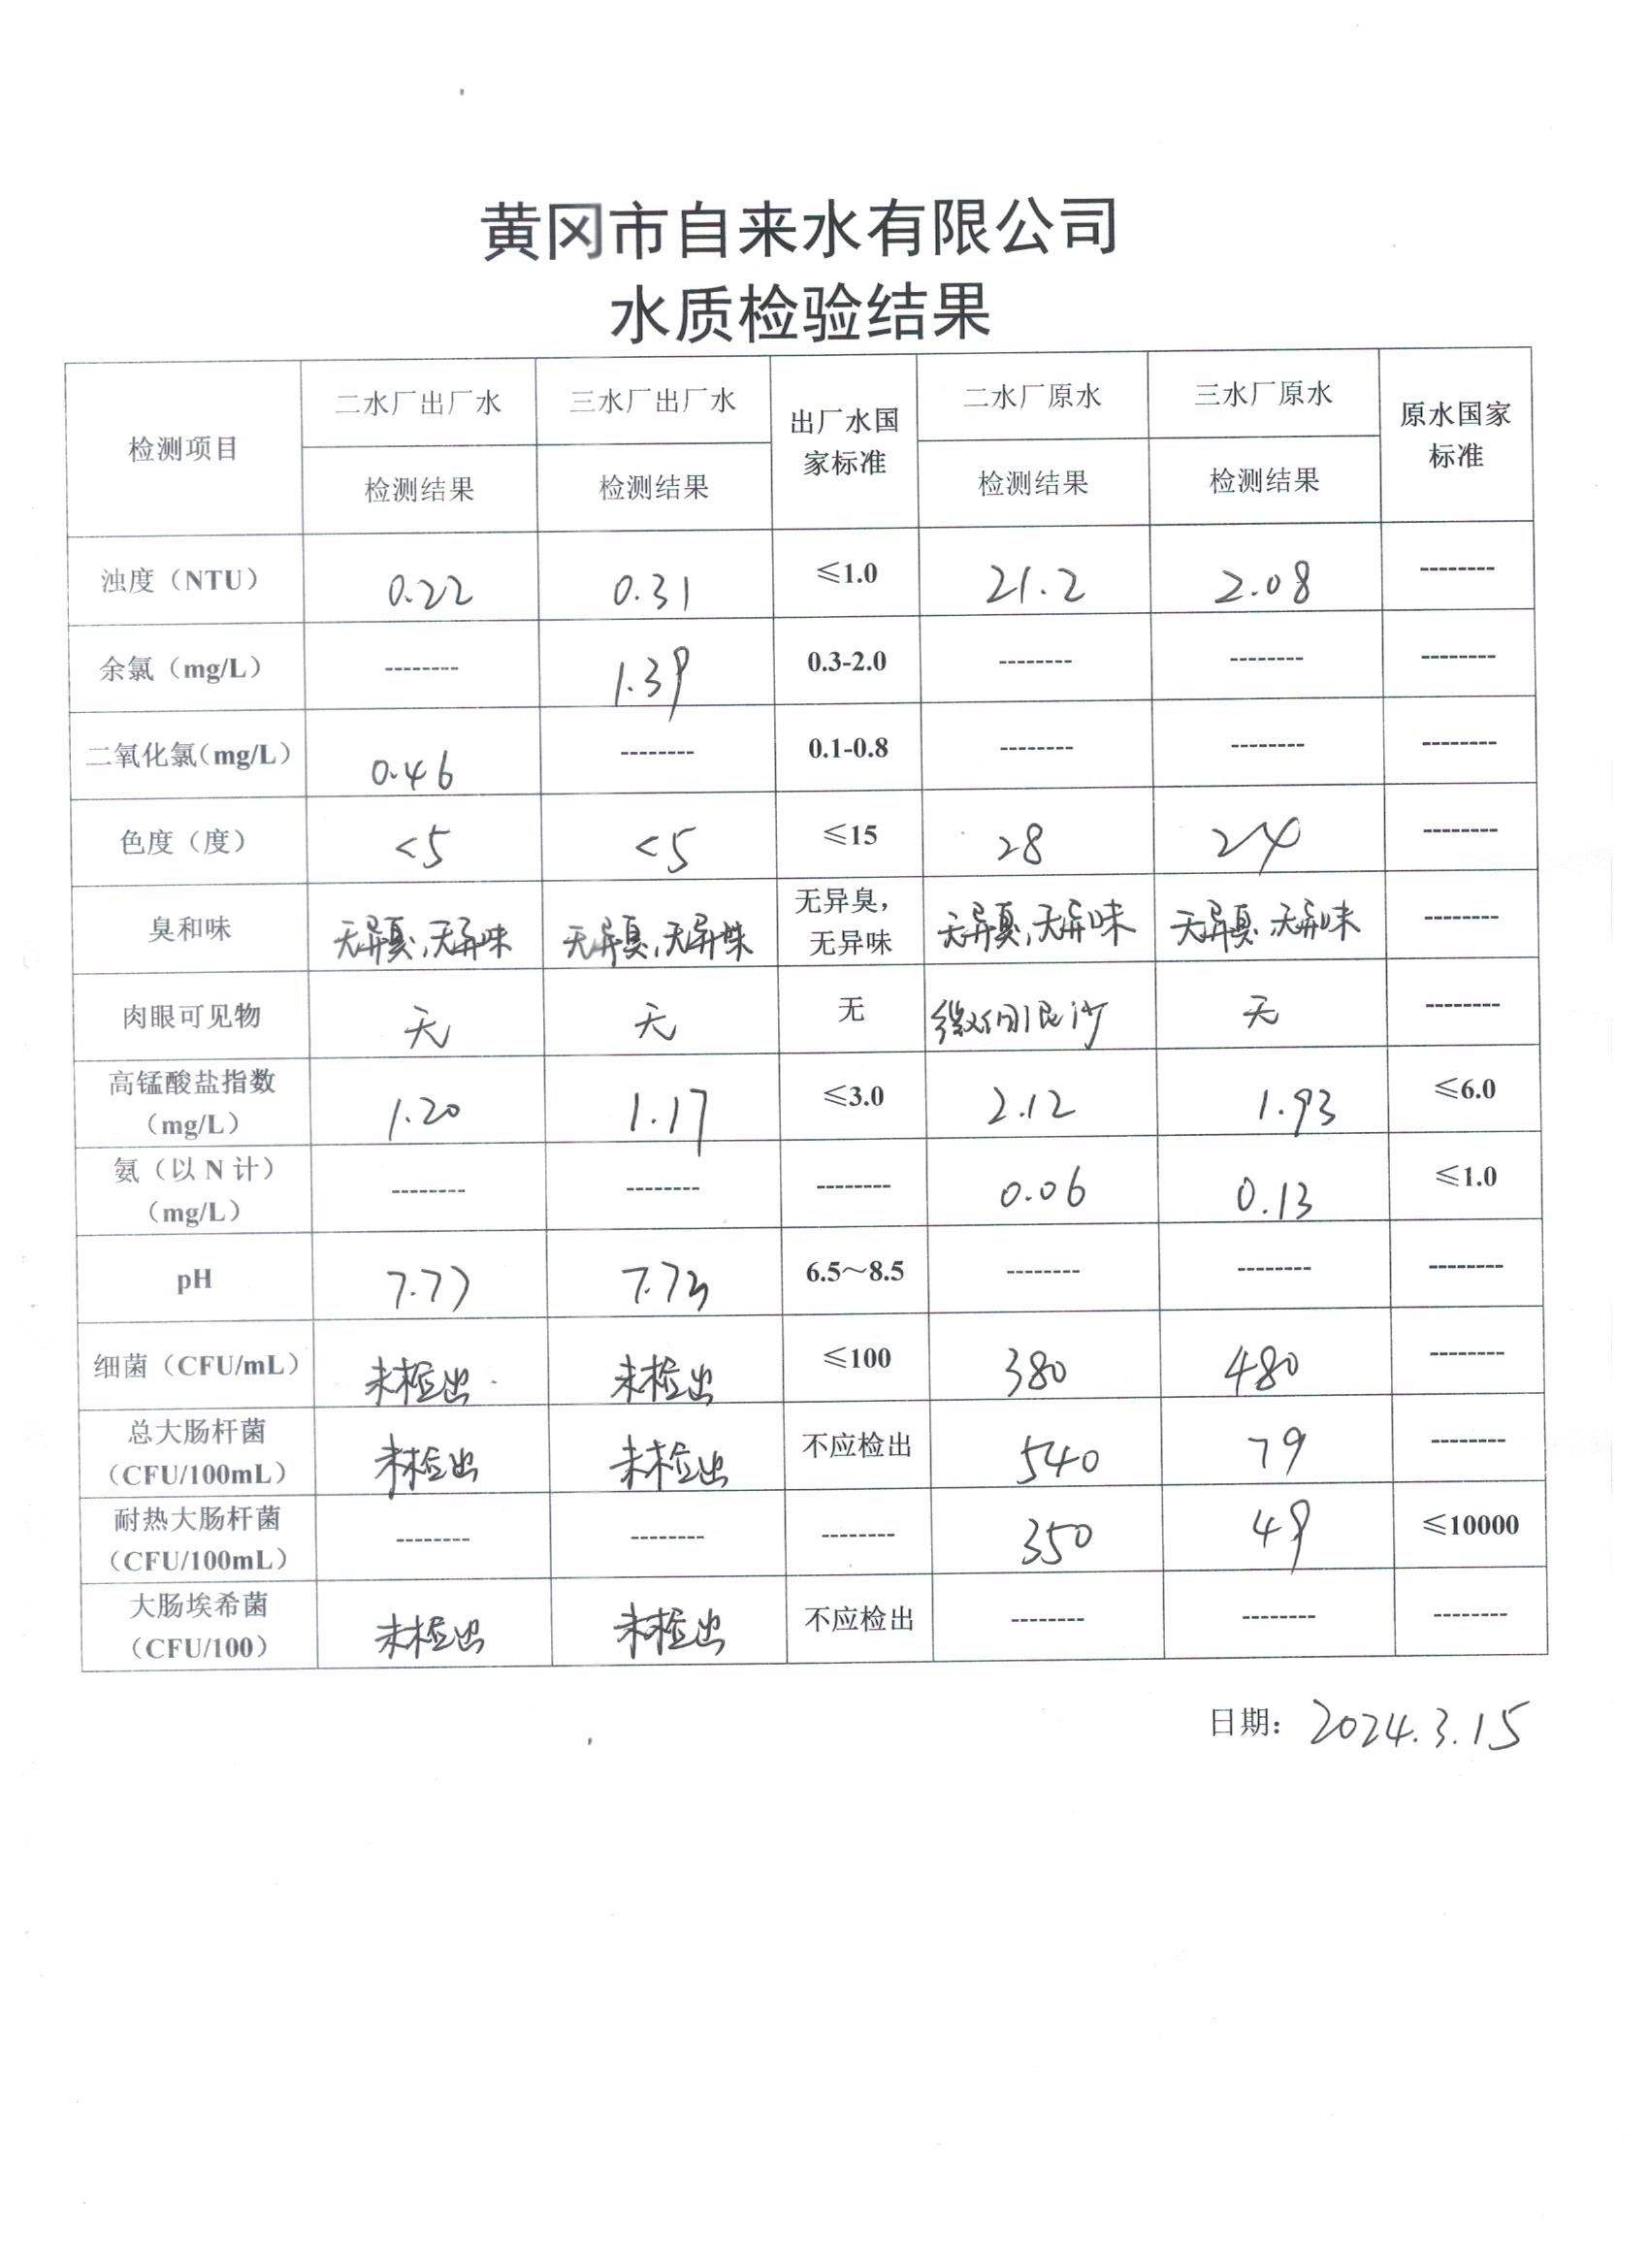 黄冈市自来水有限公司
水质检验结果
检测项目 二水厂出厂水 三水厂出厂水 出厂水国家标准 二水厂原水 三水厂原水 原水国家标准
检测结果 检测结果 检测结果 检测结果
浊度（NTU） 0.22 0.31 ≤1.0 21.2 2.08 --------
余氯（mg/L） -------- 1.39 0.3-2.0 -------- -------- --------
二氧化氯（mg/L） 0.46 -------- 0.1-0.8 -------- -------- --------
色度（度） <5 <5 ≤15 28 24 --------
臭和味 无异臭，无异味 无异臭，无异味 无异臭，无异味 无异臭，无异味 无异臭，无异味 --------
肉眼可见物 无 无 无 微细泥沙 无 --------
高锰酸盐指数（mg/L） 1.20 1.17 ≤3.0 2.12 1.93 ≤6.0
氨（以 N 计）（mg/L） -------- -------- -------- 0.06 0.13 ≤1.0
pH 7.77 7.73 6.5～8.5 -------- -------- --------
细菌（CFU/mL） 未检出 未检出 ≤100 380 480 --------
总大肠杆菌（CFU/100mL） 未检出 未检出 不应检出 540 79 --------
耐热大肠杆菌（CFU/100mL） -------- -------- -------- 350 49 ≤10000
大肠埃希菌（CFU/100） 未检出 未检出 不应检出 -------- -------- --------
日期：2024.3.15